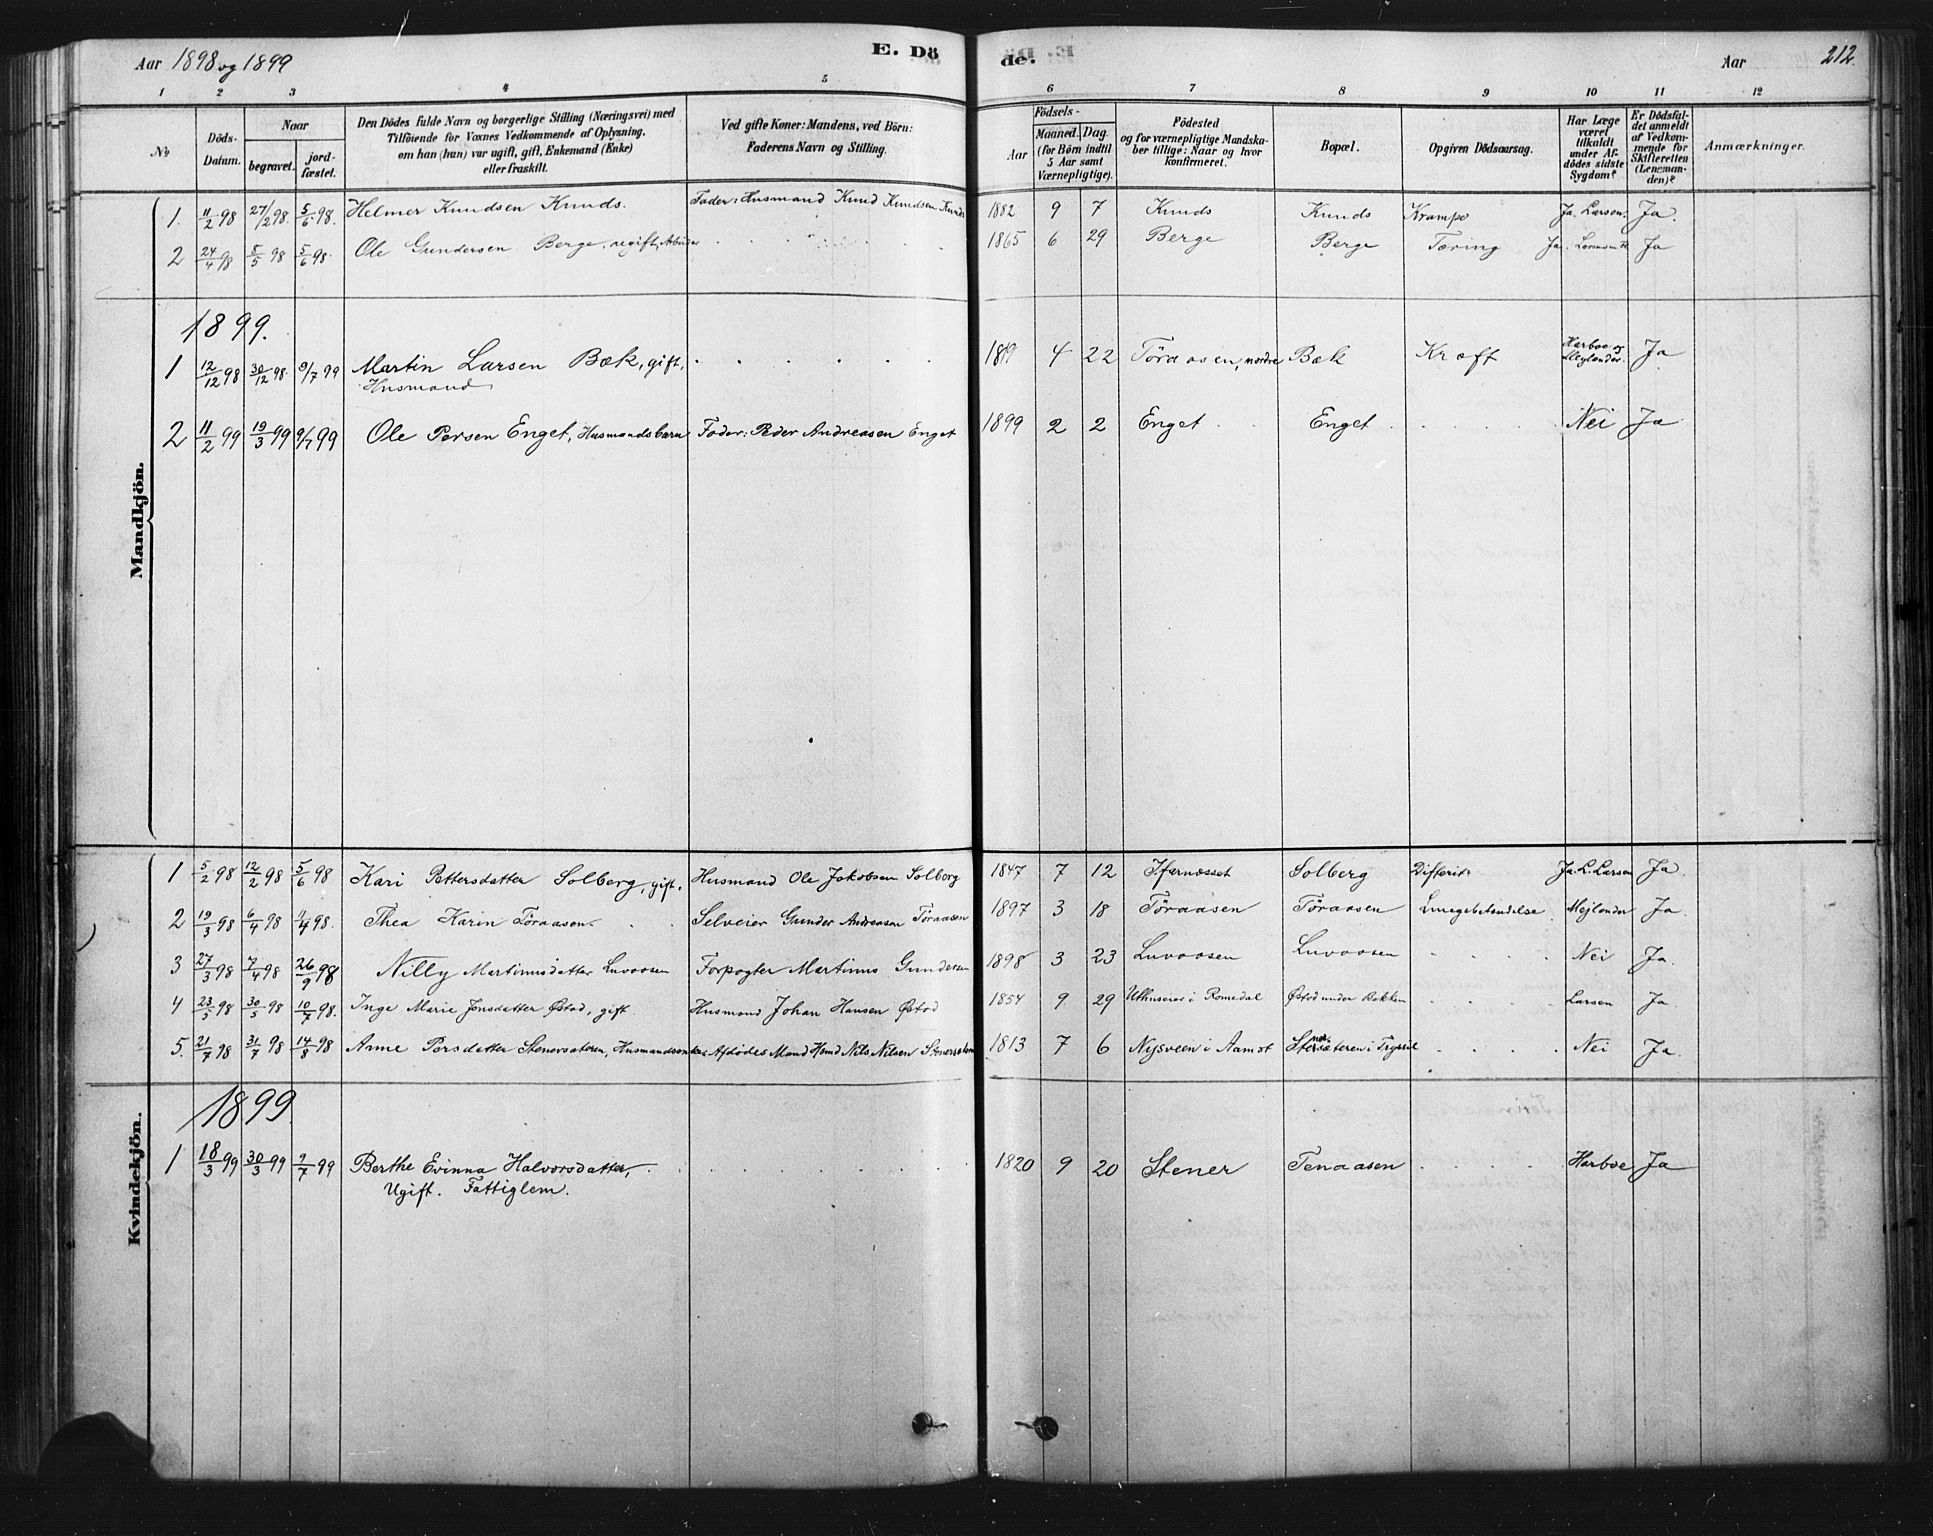 Aar 1898 og 1899 E. Dö de. Aar 212.
1 2 3 4 5 6 7 8 9 10 11 12
No Döds-Datum. Naar begravet. jordfæstet. Den Dödes fulde Navn og borgerlige Stilling (Næringsvei) med Tilföiende for Voxnes Vedkommende af Oplysning, om han (hun) var ugift, gift, Enkemand (Enke) eller fraskilt. Ved gifte Koner: Mandens, ved Börn: Faderens Navn og Stilling. Födsels- Aar Maaned. Dag. (for Börn indtil 5 Aar samt Værnepligtige). Födested og for værnepligtige Mandskaber tillige: Naar og hvor konfirmeret. Bopæl. Opgiven Dödsaarsag. Har Læge været tilkaldt under Afdödes sidste Sygdom? Er Dödsfaldet anmeldt af Vedkommende for Skifteretten (Lensmanden)? Anmærkninger.
Mandkjön.
1. 11/2 98 27/2 98. 5/6 98. Helmer Knudsen Kunds. Fader: Husmand Knud Knudsen Kunds 1882 9 7 Kunds Kunds Krampe Ja. Larsen. Ja.
2 24/4 98 8/5 98 5/6 98. Ole Gundersen Berge, ugift, Arbeider 1865 6 29 Berge Berge Tæring Ja. Ja
1899.
1 12/12 98 30/12 98. 9/7 99 Martin Larsen Bæk, gift, 1819 4 22 Töraasen, nordre Bæk Kræft Harboe og Mejlænder. Ja
Husmand
2 11/2 99 19/3 99 9/7 99 Ole Persen Enget, Husmandsbarn Fader: Peder Andreasen Enget 1899 2 2 Enget Enget Nei Ja
Kvindekjön.
1 5/2 98 12/2 98 5/6 98 Kari Pettersdatter Solberg, gift. Husmand Ole Jakobsen Solberg 1847 7 12 Solberg Difterit. Ja. L. Larsen Ja
2 19/3 98 6/4 98 98. Thea Karin Töraasen. Selveier Gunder Andreasen Töraasen 1897 3 18 Töraasen Töraasen Lungebetændelse Mejlender Ja.
3 27/3 98 7/4 98 26/9 98 Nilly Martinusdatter Luvaasen Forpagter Martinus Gundersen 1898 3 23 Luvaasen Luvaasen Nei Ja.
4 23/5 98 30/5 98 10/7 98. Inge Marie Jonsdatter Østad, gift. Husmand Johan Hansen Østad 1854 9 29 i Romedal Østad under Bakken Larsen Ja.
5. 21/7 98 31/7 98 14/8 98 Anne Persdatter Stenersæteren, Afdödes Mand Hsmd Nils Nilsen 1813 7 6 Nysveen i Aamot i Trysil Nei Ja.
1899
1 18/3 99 30/3 99 9/7 99 Berthe Evinna Halvorsdatter, 1820 9 20 Stener Tenaasen Harboe Ja
Ugift. Fattiglem.